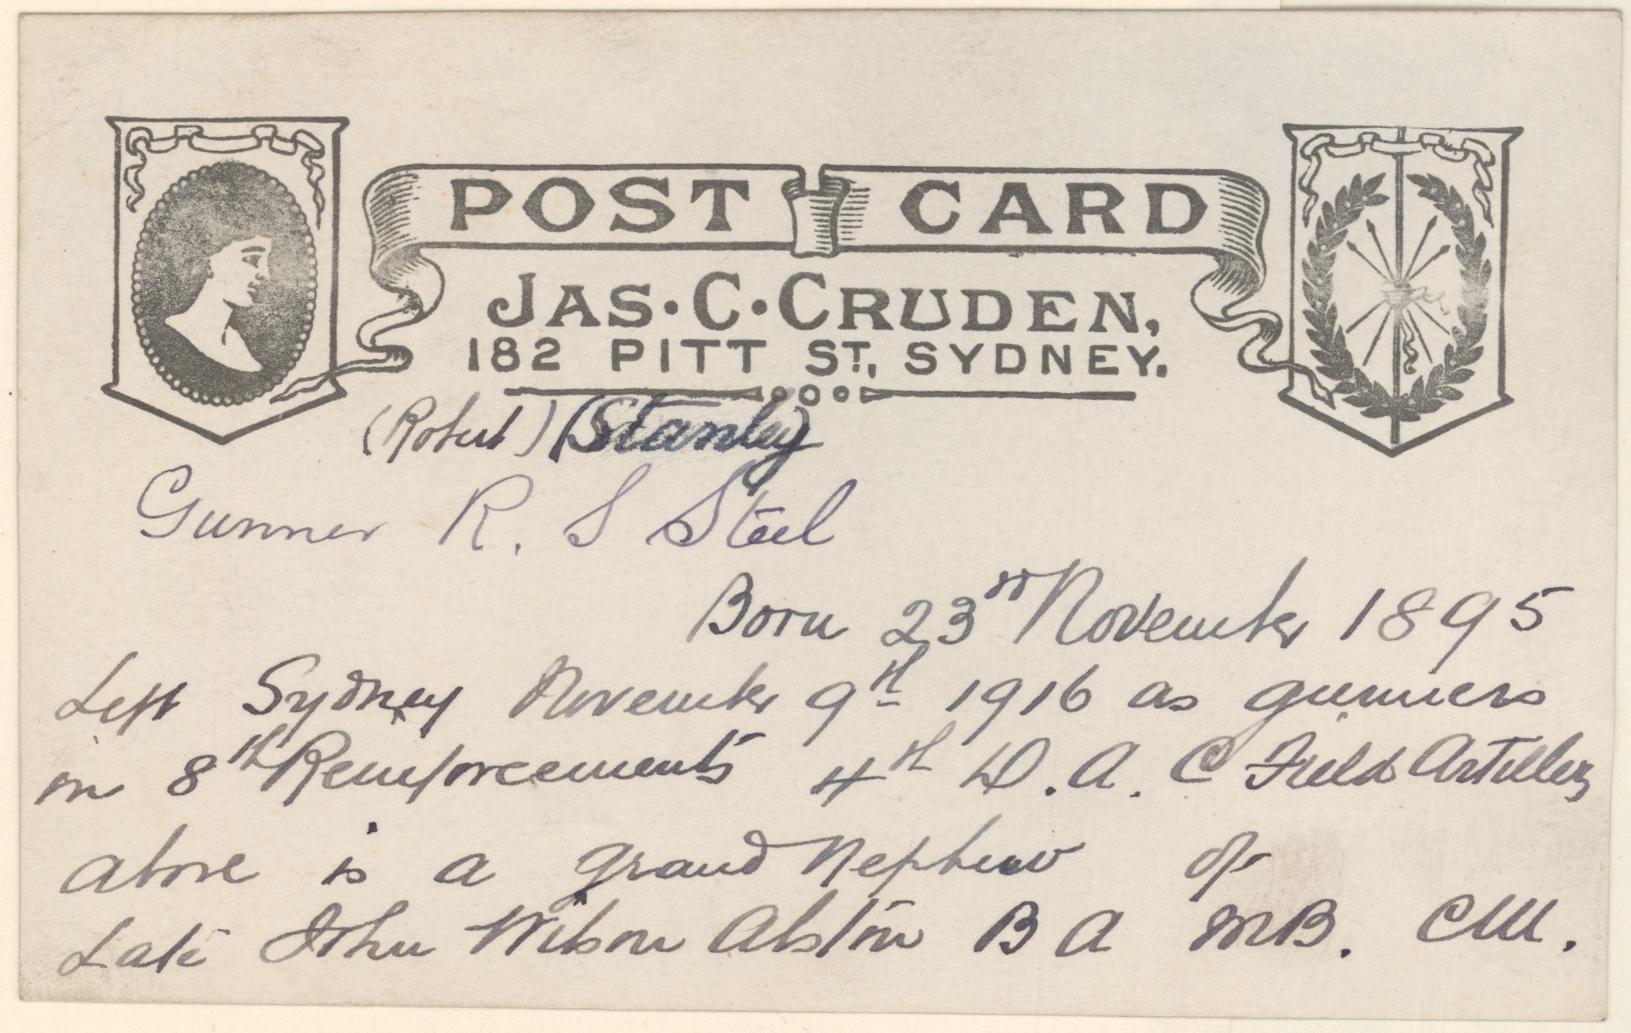 POST CARD
JAS. C. CRUDEN,
182 PITT ST, SYDNEY.
(Robert) (Stanley)
Gunner R. S Steel
Born 23rd November 1895
Left Sydney November 9th 1916 as gunners
in 8th Reinforcements 4th D. A. C Field Artillery
above is a grand Nephew of
Late John Wilson Alston B A MB. CM.